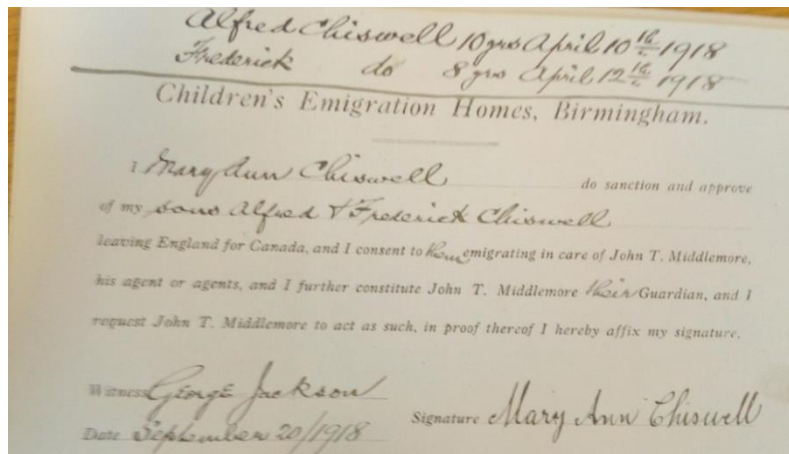 Alfred Chiswell 10 yrs April 10th 1918
Frederick do 8 yrs April 12th 1918
Children's Emigration Homes, Birmingham.
I Mary Ann Chiswell do sanction and approve
of my sons Alfred & Frederick Chiswell
leaving England for Canada, and I consent to them emigrating in care of John T. Middlemore,
his agent or agents, and I further constitute John T. Middlemore their Guardian, and I
request John T. Middlemore to act as such, in proof thereof I hereby affix my signature.
Witness George Jackson
Signature Mary Ann Chiswell
Date September 20/1918